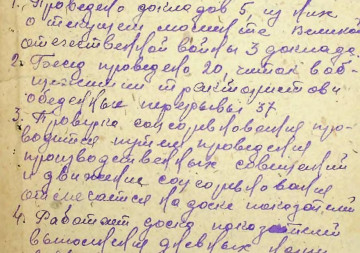 1. Проведено докладов 5, из них
о текущем моменте Великой
отечественной войны 3 доклада.
2. Бесед проведено 20, читок в об
тракторист
обеденные перерывы 37
3. Проверка соцсоревнования про-
водится путем проведения
производственных совещаний
и движение соцсоревнования
отмечается на доске показателей
4. Работает доска показателей
выполнения дневных